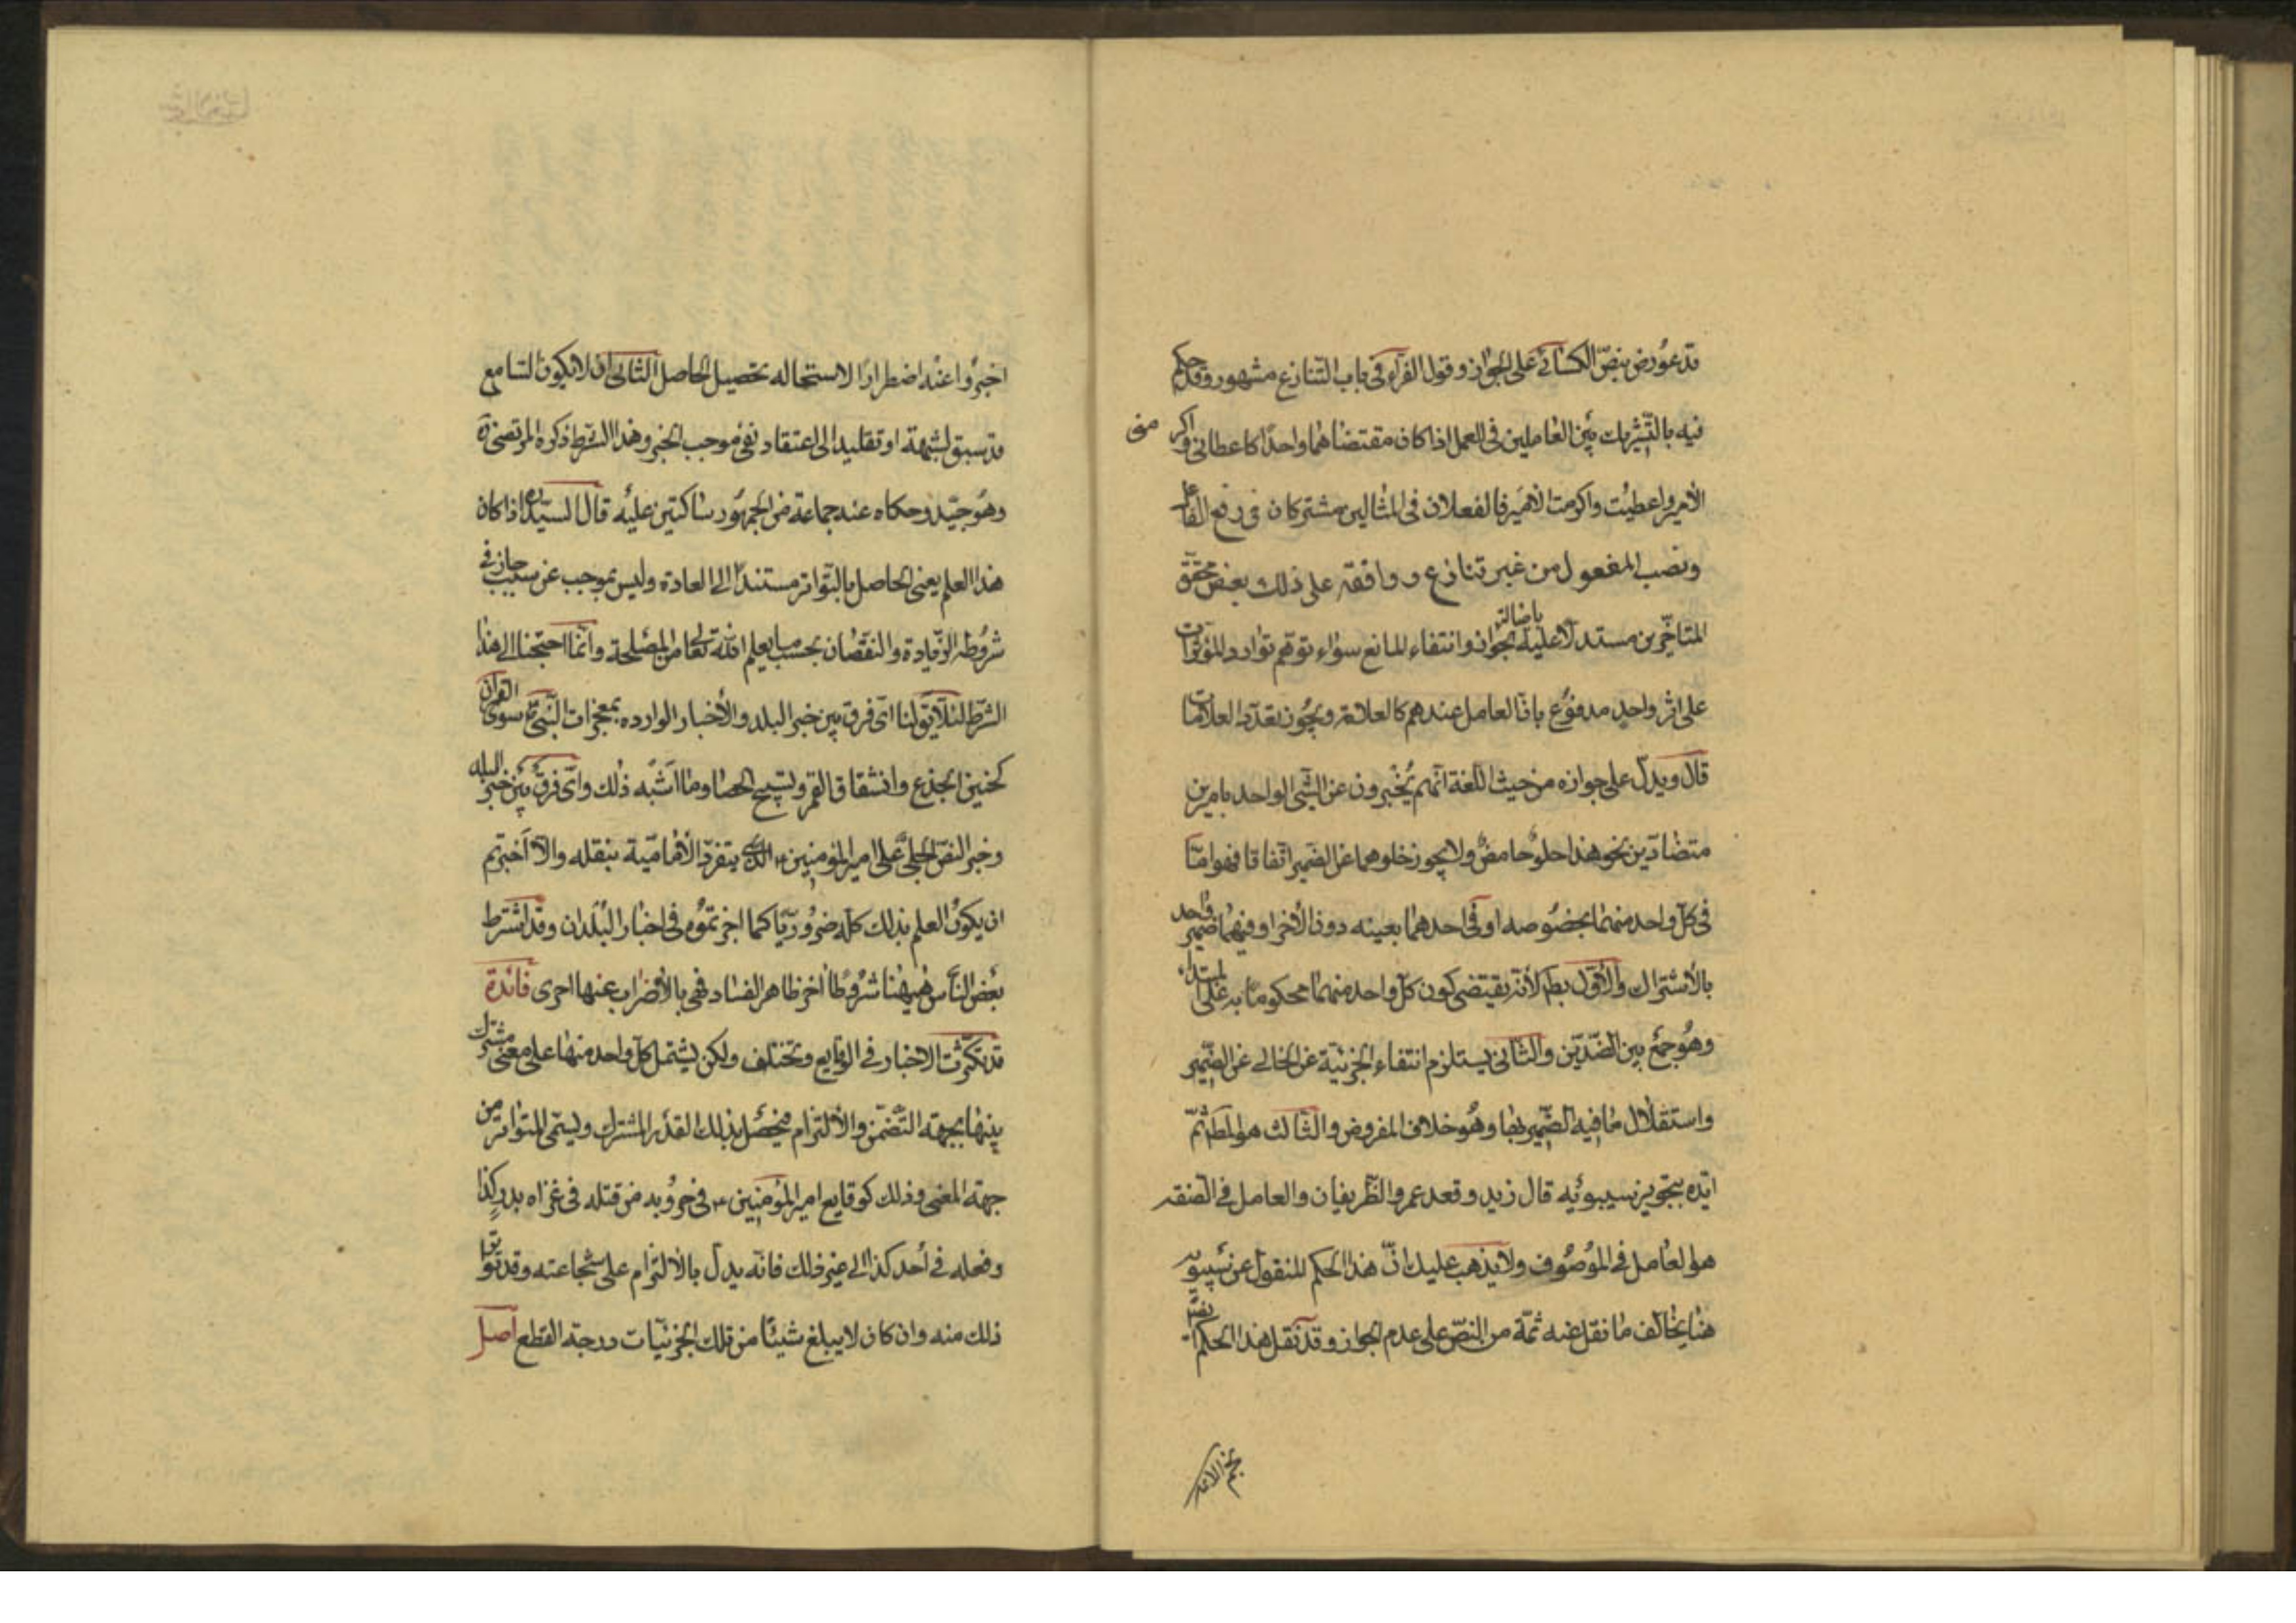 قد عورض بنصّ الكسائي على الجواز وقول الفرآء في باب التنازع مشهور وقد حكم
فيه بالتشريك بين العاملين في العمل اذا كان مقتضاهما واحدًا كاعطاني واكرمنى
الأمير واعطيت واكرمت الامير فالفعلان في المثالين مشتركان في رفع الفاعل
ونصب المفعول من غير تنازع ووافقه على ذلك بعض محقق
المتأخرين مستدلا عليه باصالة الجواز وانتفاء المانع سواء توهم توارد المؤثرات
على اثر واحد مدفوع بانّ العامل عندهم كالعلامة ويجوز تعدّد العلامات
قال ويدلّ على جوازه من حيث اللّغة انّهم يُخبرون عن الشّي الواحد بامرين
متضادّين نحو هذا حلو حامض ولا يجوز خلوهما عن الضمير اتفاقا فهو امّا
في كلّ واحد منهما بخصوصه او في احدهما بعينه دون الأخر او فيهما ضمير واحد
بالأشتراك والأوّل بط لأنّه يقتضى كون كلّ واحد منهما محكومًا به على المبتداء
وهُو جمع بين الضّدّين والثّانى يستلزم انتفاء الخبريّة عن الخالي عن الضّمير
واستقلال ما فيه الضّمير بها وهُو خلاف المفروض والثّالث هو المط ثمّ
ايّده بتجويز سيبويه قال زيد وقعد عمرو الظّريفان والعامل في الصّفة
هو العامل في الموصُوف ولا يذهب عليك انّ هذا الحكم المنقول عن سيبويه
هنا يخالف ما نقل عنه ثمّة من النصّ على عدم الجواز وقد نقل هذا الحكم
نجم الائمه
اخبروا عنه اضطرارًا لاستحاله تحصيل الحاصل الثّانى ان لا يكون السّامع
قد سبق لشبهة او تقليد الى اعتقاد نفى موجب الخبر وهذا الشرط ذكره المرتضى ره
وهُو جيّد وحكاه عنه جماعة من الجمهُور ساكتين عليه قال السّيد ره اذا كان
هذا العلم يعنى الحاصل بالتّواتر مستندًا الى العادة وليس بموجب عن سبب جاز في
شروُطه الزّيادة والنّقصان بحسب ما يعلم اللّه تعالى من المصلحة وانّما احتجنا الى هذا
الشّرط لئلّا يق لنا اىّ فرق بين خبر البلد والأخبار الوارده بمعجزات النّبيّ سوى القرآن
كحنين الجذع وانشقاق القمر وتسبيح الحصا وما اشبه ذلك واىّ فرق بين خبر البلد
وخبر النصّ الجلىّ على امير المؤمنين الذّي يتفرّد الأماميّة بنقله والّا اخبرتم
ان يكون العلم بذلك كلّه ضرُوريّا كما اجزتموُه في اخبار البُلدان وقد اشترط
بعض النّاس ههُنا شرُوطًا اخر ظاهر الفساد فهى بالأضراب عنها احرى فائدة
قد تكثرت الاخبار في الوقايع وتختلف ولكن يشتمل كلّ واحد منها على معنى مشترك
بينها بجهة التّضمّن والألتزام فيحصل بذلك القدر المشترك ويسمّى المتواتر من
جهة المعنى وذلك كوقايع امير المؤمنين في حروُبه من قتله في غزاه بدر كذا
وفعله في أحد كذا الى غير ذلك فانّه يدلّ بالألتزام على شجاعته وقد تواتر
ذلك منه وان كان لا يبلغ شيئًا من تلك الجزئيّات درجة القطع اصل